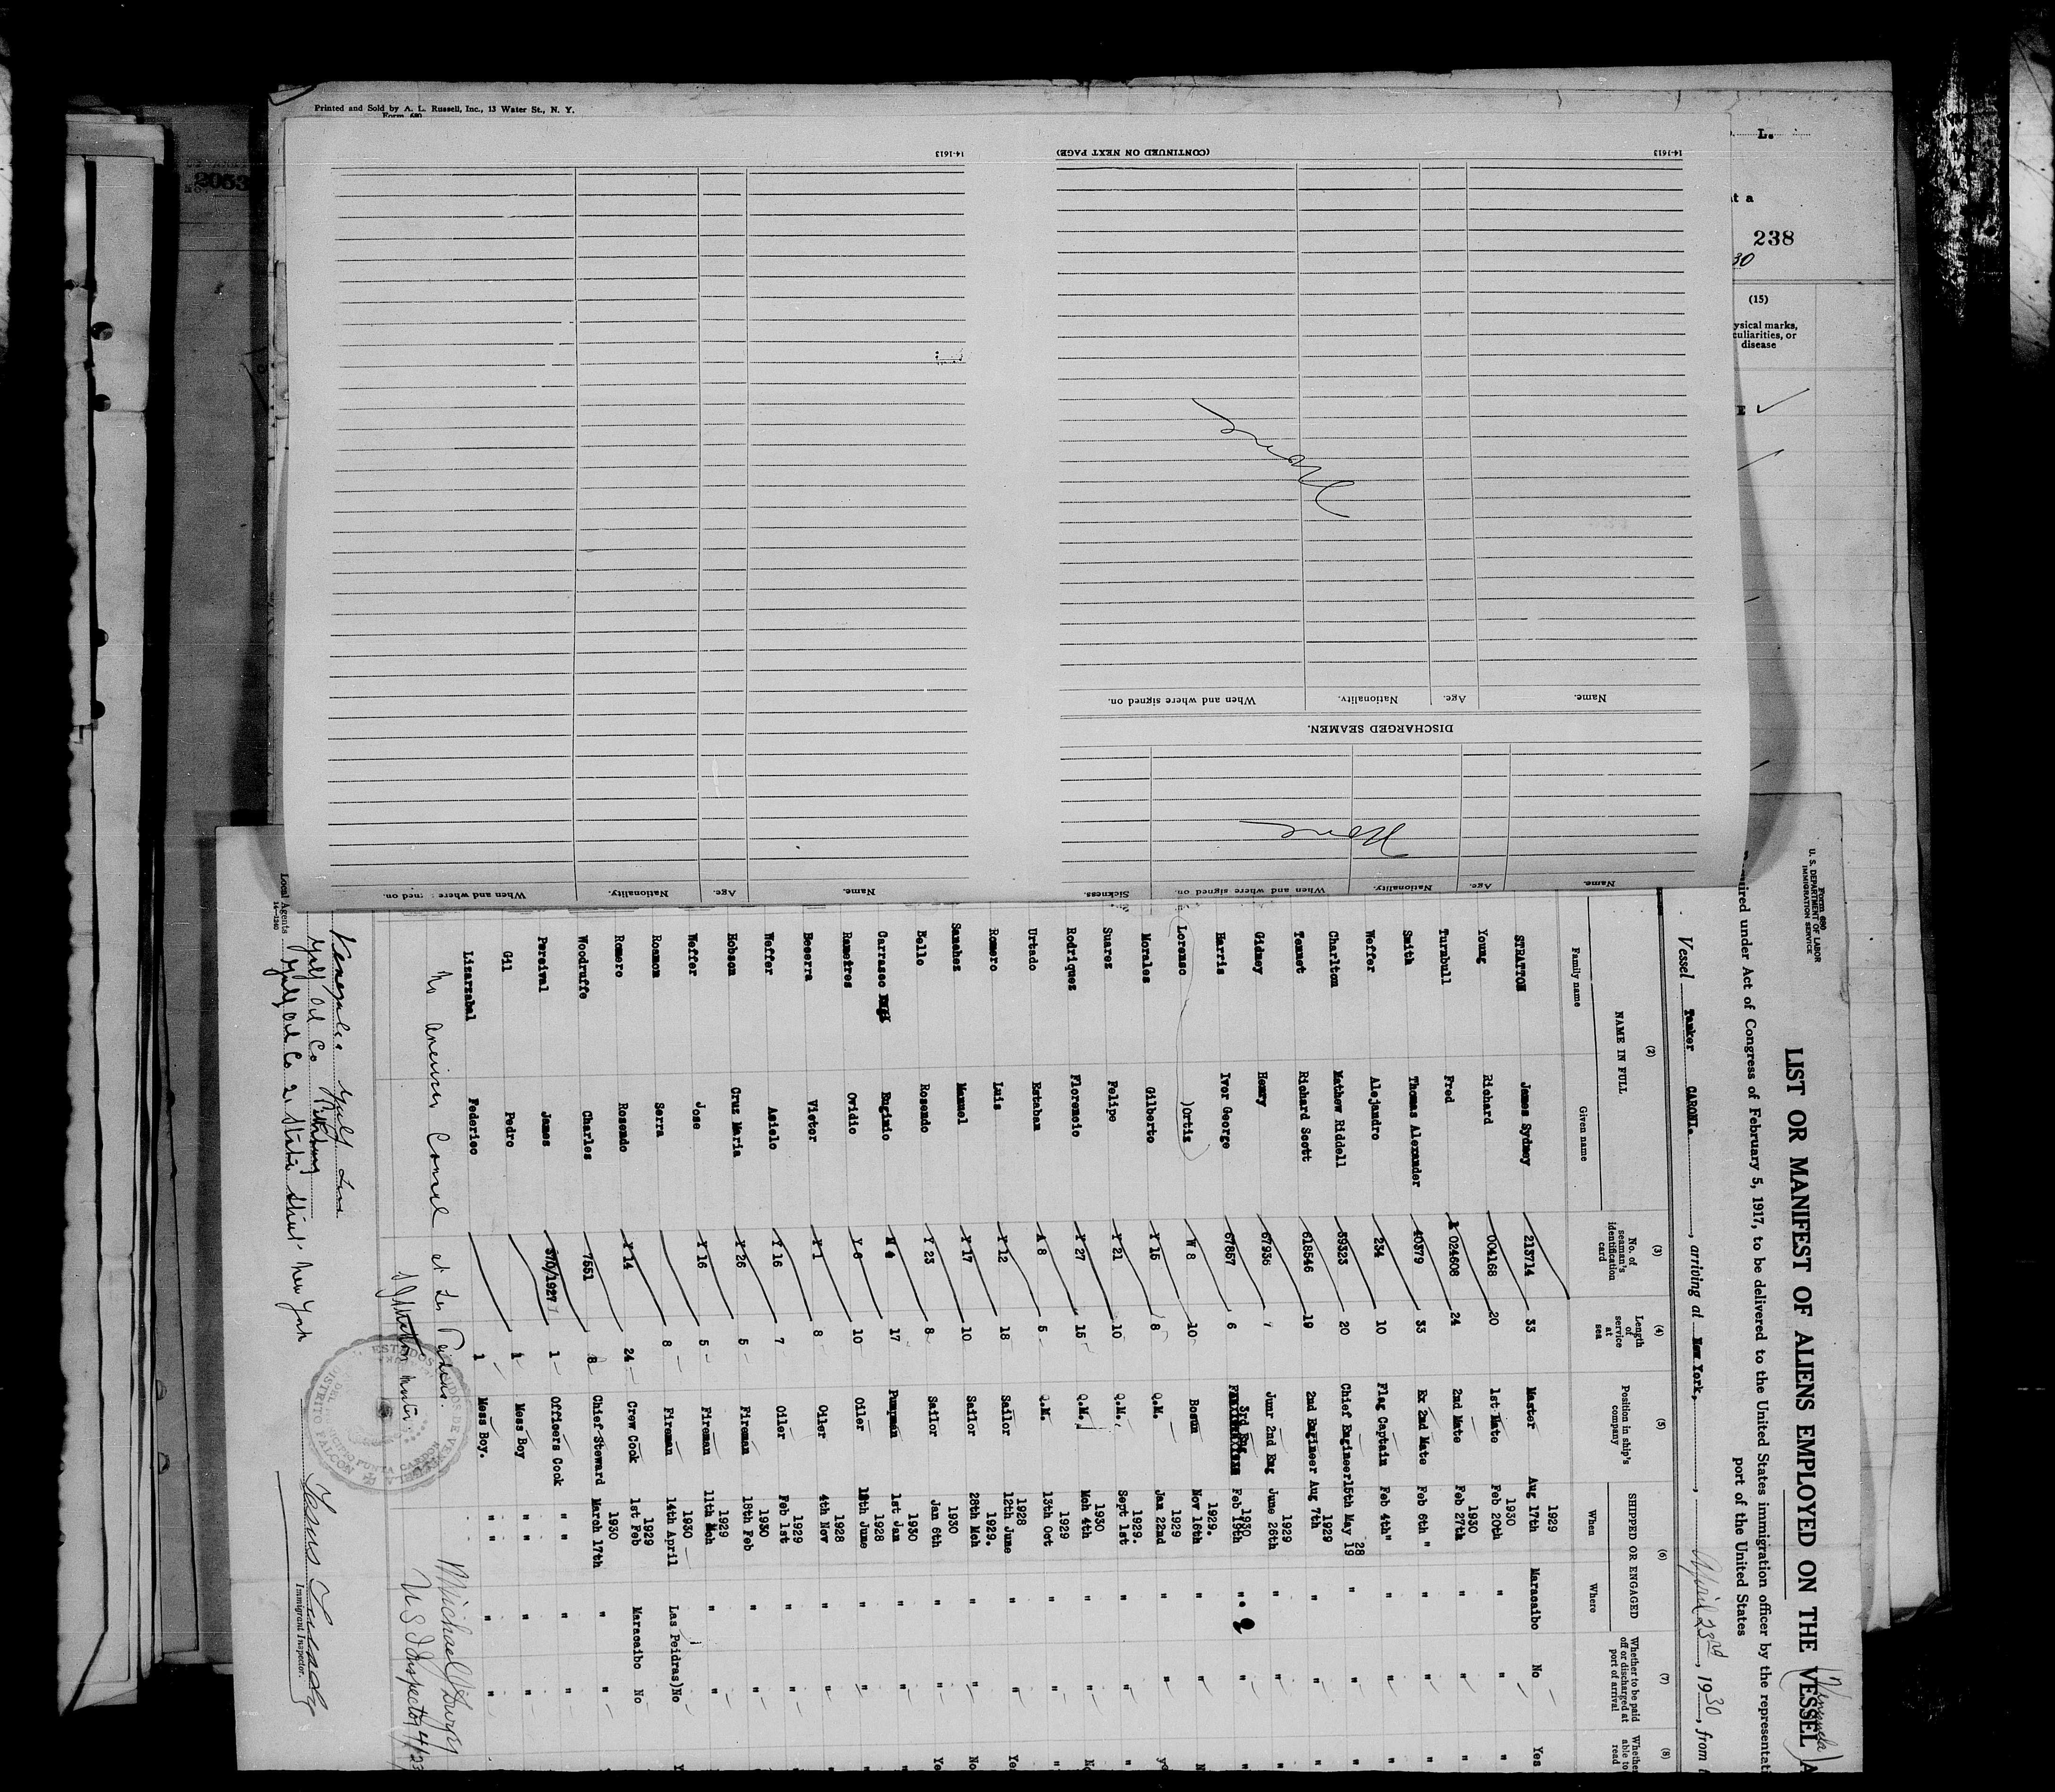 Printed and Sold by A. L. Russell, Inc., 13 Water St., N. Y.
Form 680
2063
L.
238
30
(15)
disease
14-1613
14-1613
(CONTINUED ON NEXT PAGE)
None
Name.
Age.
Nationality.
When and where signed on.
DISCHARGED SEAMEN.
None
Name.
Age.
Nationality.
When and where signed on.
Sickness.
Name.
Age.
Nationality.
When and where
Form 680
U. S. DEPARTMENT OF LABOR
IMMIGRATION SERVICE
LIST OR MANIFEST OF ALIENS EMPLOYED ON THE VESSEL
under Act of Congress of February 5, 1917, to be delivered to the United States immigration officer by the
port of the United States
Vessel Tanker CARONI. , arriving at New York, , April 23rd, 1930, from
(2) (3) (4) (5) (6) (7) (8)
NAME IN FULL No. of seaman's identification card Length of service at sea Position in ship's company SHIPPED OR ENGAGED Whether to be paid off or discharged at port of arrival Whether able to read
Family name Given name When Where
STRATTON James Sydney 213714 33 Master Aug 17th 1929 Maracaibo No Yes
Young Richard 004168 20 1st Mate Feb 20th 1930 " " "
Turnbull Fred 024608 24 2nd Mate Feb 27th 1930 " " "
Smith Thomas Alexander 40379 33 Ex 2nd Mate Feb 6th " " " "
Weffer Alejandro 234 10 Flag Captain Feb 4th " " " "
Charlton Mathew Riddell 59323 20 Chief Engineer 15th May 1928 " " "
Tennet Richard Scott 618546 19 2nd Engineer Aug 7th 1929 " " "
Gidney Henry 67936 7 Junr 2nd Eng June 26th 1929 " " "
Harris Ivor George 67857 6 3rd Eng Feb 19th 1930 " " "
Lorenso )Ortiz W 8 10 Bosun Nov 16th 1929. " "
Morales Gilberto Y 15 8 Q.M. Jan 22nd 1929 " "
Suarez Felipe Y 21 10 Q.M. Sept 1st 1929. " " "
Rodriquez Florencio Y 27 15 Q.M. Mch 4th 1930 " " No
Urtado Estaban A 8 5 Q.M. 13th Oct 1929 " " "
Romero Luis Y 12 18 Sailor 12th June 1928 " " Yes
Sanchez Manuel Y 17 10 Sailor 28th Mch 1929. " " No
Bello Rosendo Y 23 8 Sailor Jan 6th 1930 " " Yes
Carrasco Euginio M 4 17 Pumpman 1st Jan 1930 " " "
Ovidio 10 Oiler June 1928 " " "
Becerra Victor Y 1 8 Oiler 4th Nov 1928 " " "
Weffer Asislo Y 16 7 Oiler Feb 1st 1929 " " "
Hobson Cruz Maria Y 26 5 Fireman 18th Feb 1930 " " "
Weffer Jose Y 16 5 Fireman 11th Mch 1929 " " "
Roamon Serra 8 Fireman 14th April 1930 Las Peidras) No
Romero Rosendo Y 14 24 Crew Cook 1st Feb 1929 Maracaibo No
Woodruffe Charles 7551 8 Chief Steward March 17th 1930 " "
Percival James 370/1927 1 Officers Cook " " " "
Gil Pedro 1 Mess Boy " " " "
Lizarzabal Federico 1 Mess Boy. " " " "
No American Consul at Las Piedras.
Master
Michael J Durgy
U S Inspector 4/23
ESTADOS UNIDOS DE VENEZUELA
DISTRITO FALCON
PUNTA CARDON
Venezuelan Gulf Line
Gulf Oil Co Pittsburg
Gulf Oil Co 21 State Street New York
Local Agents
14-1240
Immigrant Inspector.